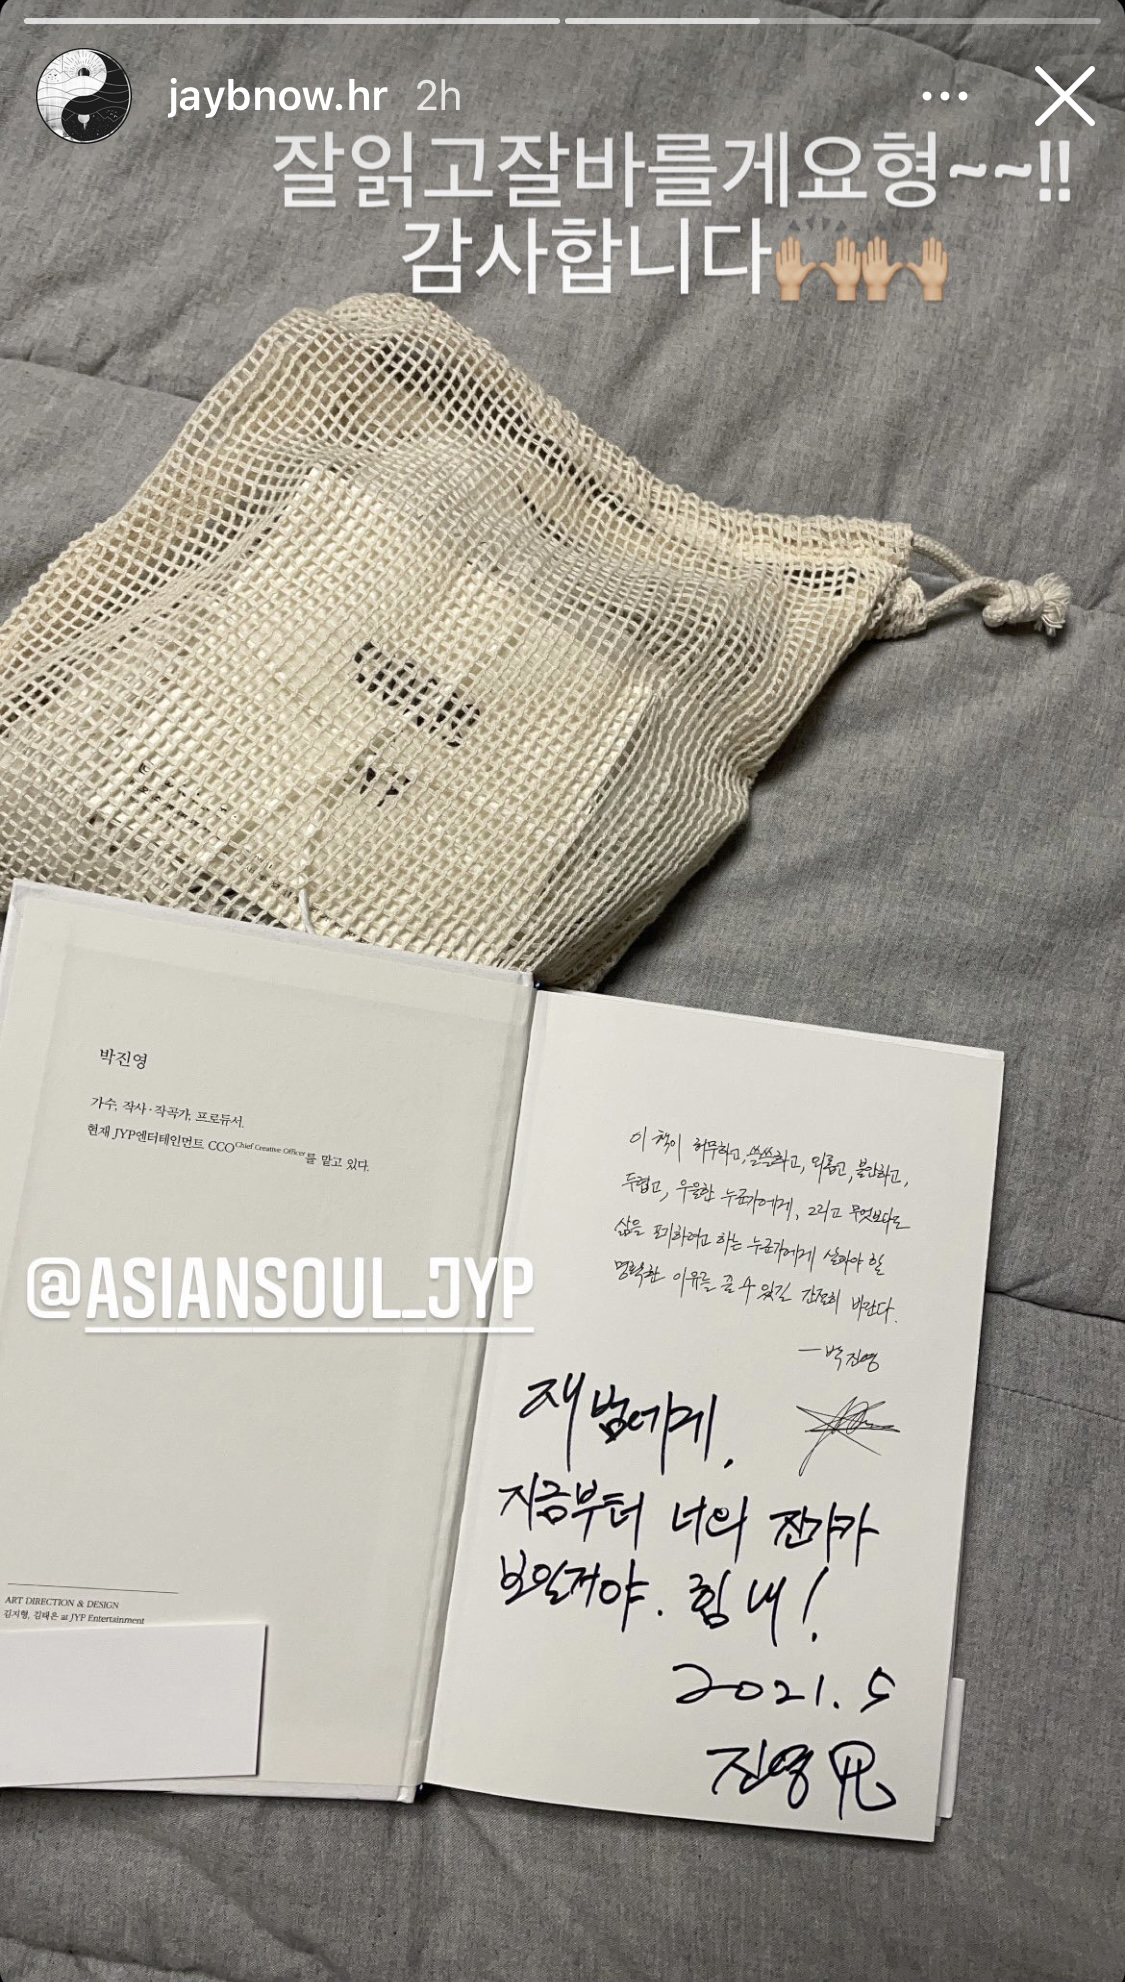 jaybnow.hr 2h
잘읽고잘바를게요형~~!!
감사합니다🙌🏼🙌🏼
박진영
가수, 작사·작곡가, 프로듀서.
현재 JYP엔터테인먼트 CCO Chief Creative Officer를 맡고 있다.
@ASIANSOUL_JYP
ART DIRECTION & DESIGN
김지형, 김태은 at JYP Entertainment
이 책이 허무하고, 쓸쓸하고, 외롭고, 불안하고,
두렵고, 우울한 누군가에게, 그리고 무엇보다도
삶을 포기하려고 하는 누군가에게 살아야 할
명확한 이유를 줄 수 있길 간절히 바란다.
—박진영
재범에게,
지금부터 너의 진가가
보일거야. 힘내!
2021. 5
진영